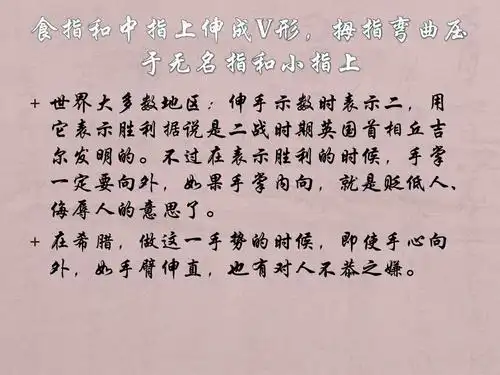 食指和中指上伸成V形，拇指弯曲压
于无名指和小指上
+ 世界大多数地区：伸手示数时表示二，用
它表示胜利据说是二战时期英国首相丘吉
尔发明的。不过在表示胜利的时候，手掌
一定要向外，如果手掌内向，就是贬低人、
侮辱人的意思了。
+ 在希腊，做这一手势的时候，即使手心向
外，如手臂伸直，也有对人不恭之嫌。